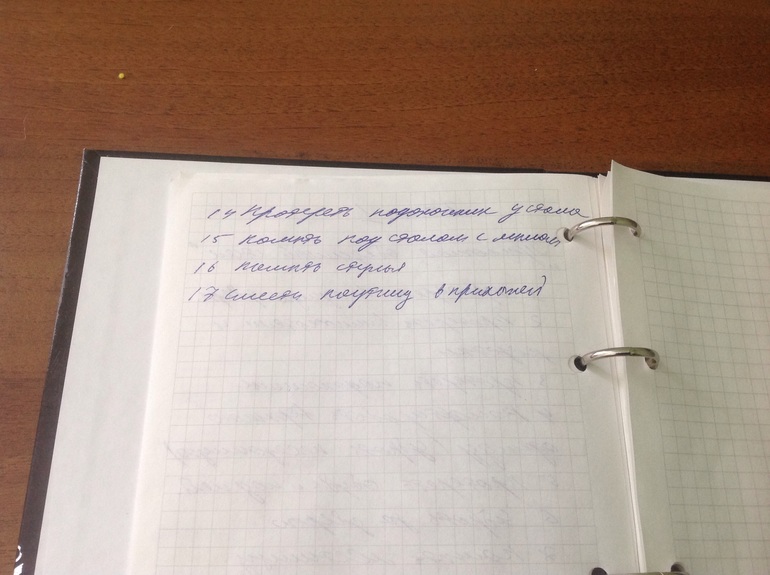 14 Протереть подоконник у стола
15 помыть под столом с мылом
16 помыть стулья
17 смести паутину в прихожей